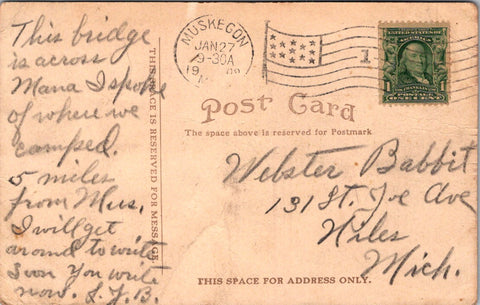 This bridge
is across
Mana I spoke
of where we
camped.
5 miles
from Mus,
I will get
around to write
soon You write
now. L.J.B.
THIS SPACE IS RESERVED FOR MESSAGE
MUSKEGON
JAN 27
9-30A
1
UNITED STATES OF AMERICA
1 ONE CENT 1
Post Card
The space above is reserved for Postmark
Webster Babbit
131 St. Joe Ave
Niles
Mich.
THIS SPACE FOR ADDRESS ONLY.